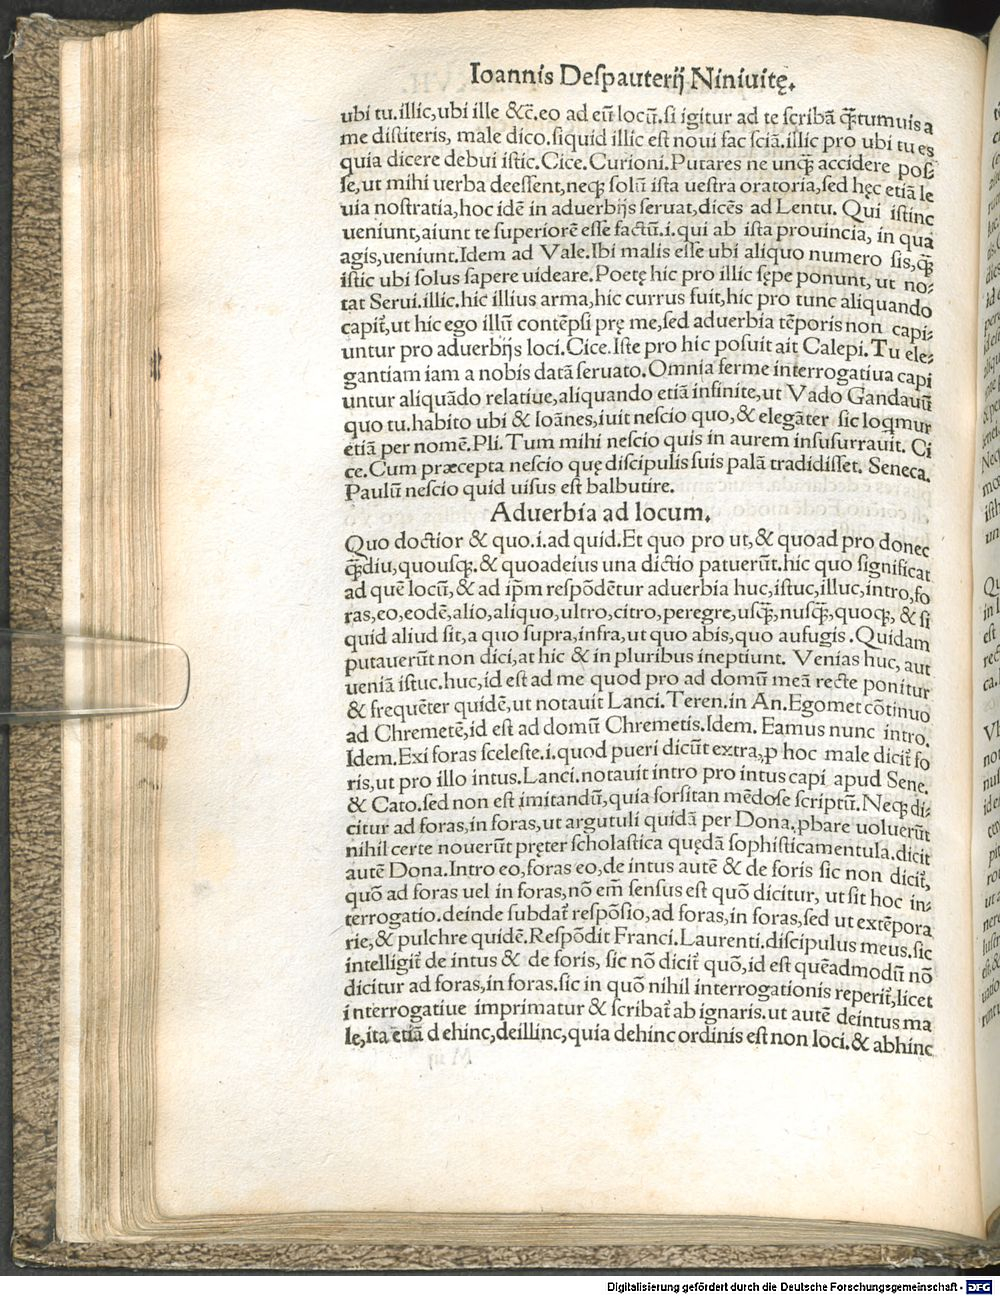 Ioannis Deſpauterij Niniuitę.
ubi tu.illic,ubi ille &c̄.eo ad eũ locũ.ſi igitur ad te ſcribã q̃tumuis a
me diſtiteris, male dico.ſiquid illic eſt noui fac ſciã.illic pro ubi tu es
quia dicere debui iſtic.Cice.Curioni.Putares ne unq̃ accidere poſ⸗
ſe,ut mihi uerba deeſſent,neqꝫ ſolũ iſta ueſtra oratoria,ſed hęc etiã le
uia noſtratia,hoc idē in aduerbijs ſeruat,dicēs ad Lentu. Qui iſtinc
ueniunt,aiunt te ſuperiorē eſſe factũ.i.qui ab iſta prouincia, in qua
agis,ueniunt.Idem ad Vale.Ibi malis eſſe ubi aliquo numero ſis,q̃
iſtic ubi ſolus ſapere uideare.Poetę hic pro illic ſępe ponunt, ut no⸗
tat Serui.illic.hic illius arma,hic currus fuit,hic pro tunc aliquando
capit̃,ut hic ego illũ contēpſi prę me,ſed aduerbia tēporis non capi⸗
untur pro aduerbijs loci.Cice.Iſte pro hic poſuit ait Calepi.Tu ele⸗
gantiam iam a nobis datã ſeruato.Omnia ferme interrogatiua capi
untur aliquãdo relatiue,aliquando etiã infinite,ut Vado Gandauũ
quo tu.habito ubi & Ioãnes,iuit neſcio quo,& elegãter ſic loqmur
etiã per nomē.Pli.Tum mihi neſcio quis in aurem inſuſurrauit. Ci
ce.Cum præcepta neſcio quę diſcipulis ſuis palã tradidiſſet. Seneca.
Paulũ neſcio quid uiſus eſt balbutire.
Aduerbia ad locum.
Quo doctior & quo.i.ad quid.Et quo pro ut,& quoad pro donec
q̃diu,quouſqꝫ.& quoadeius una dictio patuerũt.hic quo ſignificat
ad quē locũ,& ad ip̃m reſpõdētur aduerbia huc,iſtuc,illuc,intro,fo
ras,eo,eodē,alio,aliquo,ultro,citro,peregre,uſq̃,nuſq̃,quoqꝫ, & ſi
quid aliud ſit,a quo ſupra,infra,ut quo abis,quo aufugis.Quidam
putauerũt non dici,at hic & in pluribus ineptiunt. Venias huc, aut
ueniã iſtuc.huc,id eſt ad me quod pro ad domũ meã recte ponitur
& frequēter quidē,ut notauit Lanci.Teren.in An.Egomet cõtinuo
ad Chremetē,id eſt ad domũ Chremetis.Idem. Eamus nunc intro.
Idem.Exi foras ſceleſte.i.quod pueri dicũt extra,ꝓ hoc male dicit̃ fo
ris,ut pro illo intus.Lanci.notauit intro pro intus capi apud Sene.
& Cato.ſed non eſt imitandũ,quia forſitan mēdoſe ſcriptũ.Neqꝫ di⸗
citur ad foras,in foras,ut argutuli quidã per Dona.ꝓbare uoluerũt
nihil certe nouerũt pręter ſcholaſtica quędã ſophiſticamentula.dicit
autē Dona.Intro eo,foras eo,de intus autē & de foris ſic non dicit̃,
quõ ad foras uel in foras,nõ em̃ ſenſus eſt quõ dicitur, ut ſit hoc in⸗
terrogatio.deinde ſubdat̃ reſpõſio,ad foras,in foras,ſed ut extēpora
rie,& pulchre quidē.Reſpõdit Franci.Laurenti.diſcipulus meus.ſic
intelligit̃ de intus & de foris, ſic nõ dicit̃ quõ,id eſt quēadmodũ nõ
dicitur ad foras,in foras.ſic in quõ nihil interrogationis reperit̃,licet
interrogatiue imprimatur & ſcribat̃ ab ignaris.ut autē deintus ma
le,ita etiã dehinc,deillinc,quia dehinc ordinis eſt non loci.& abhinc
Digitalisierung gefördert durch die Deutsche Forschungsgemeinschaft - DFG